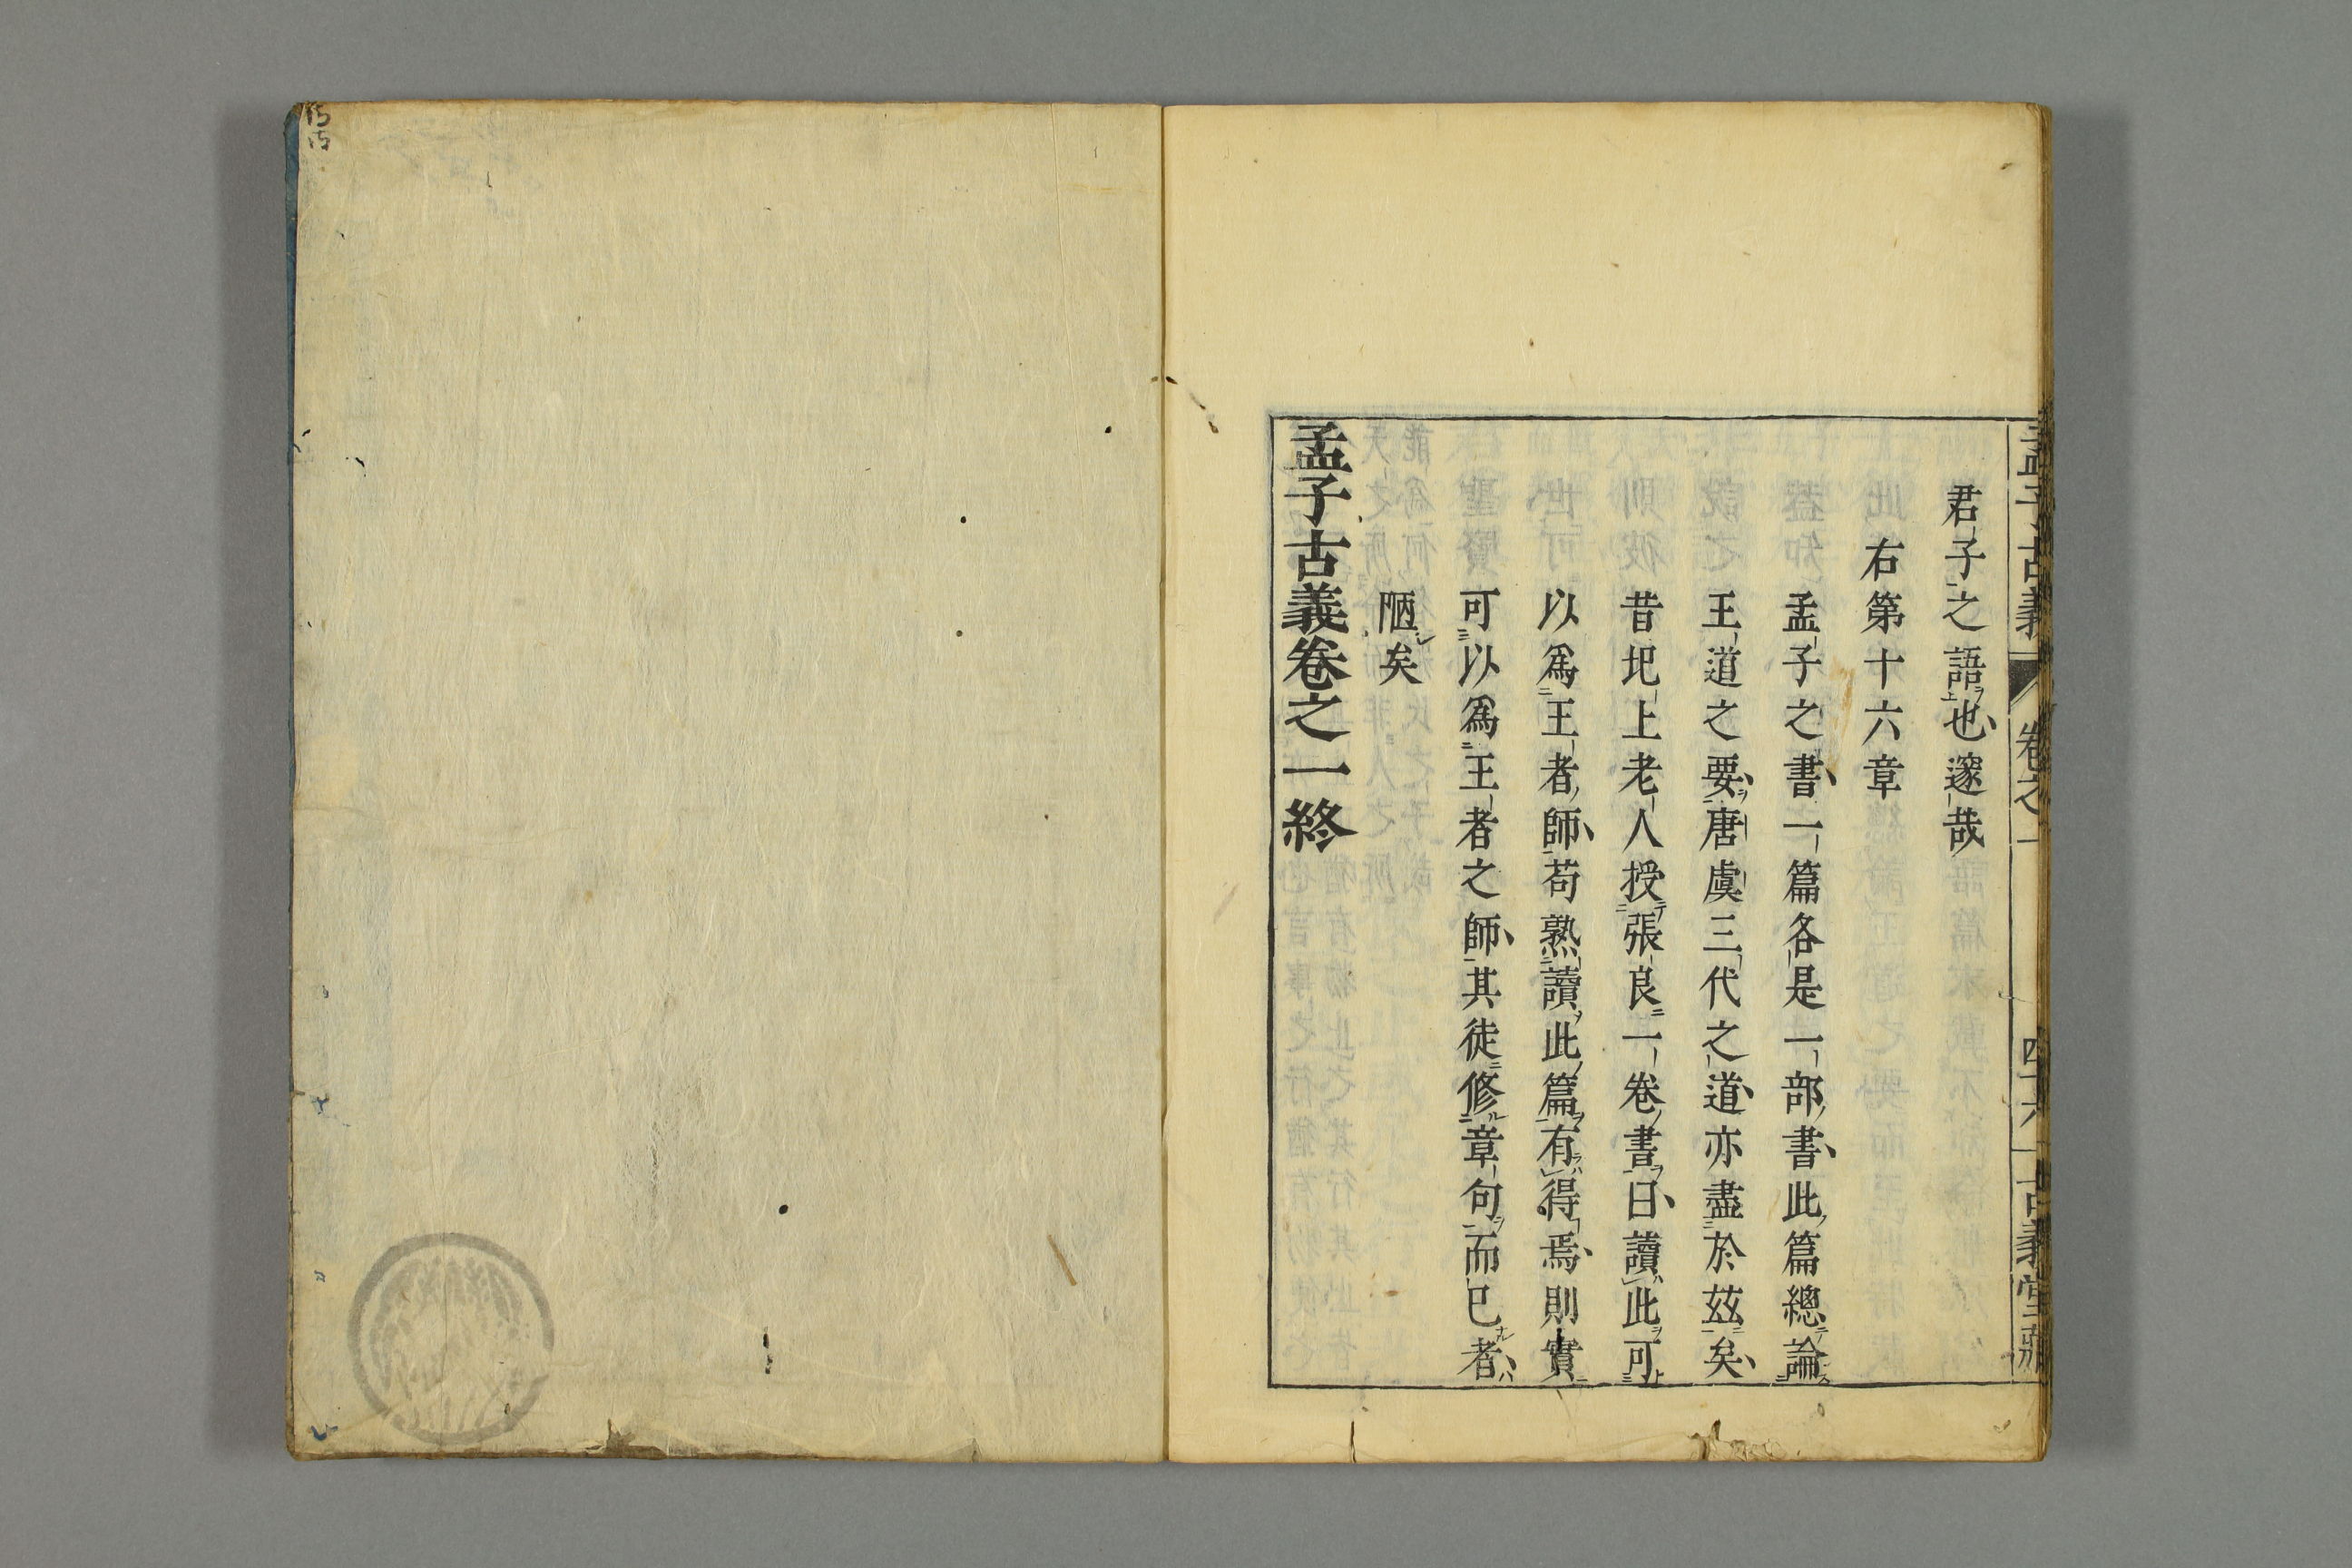 孟子古義 卷之一 四十六 古義堂藏
君子之語也邃哉
右第十六章
孟子之書一篇各是一部書此篇總論
王道之要唐虞三代之道亦盡於玆矣
昔圯上老人授張良一卷書曰讀此可
以爲王者師苟熟讀此篇有得焉則實
可以爲王者之師其徒修章句而已者
陋矣
孟子古義卷之一終
15
15